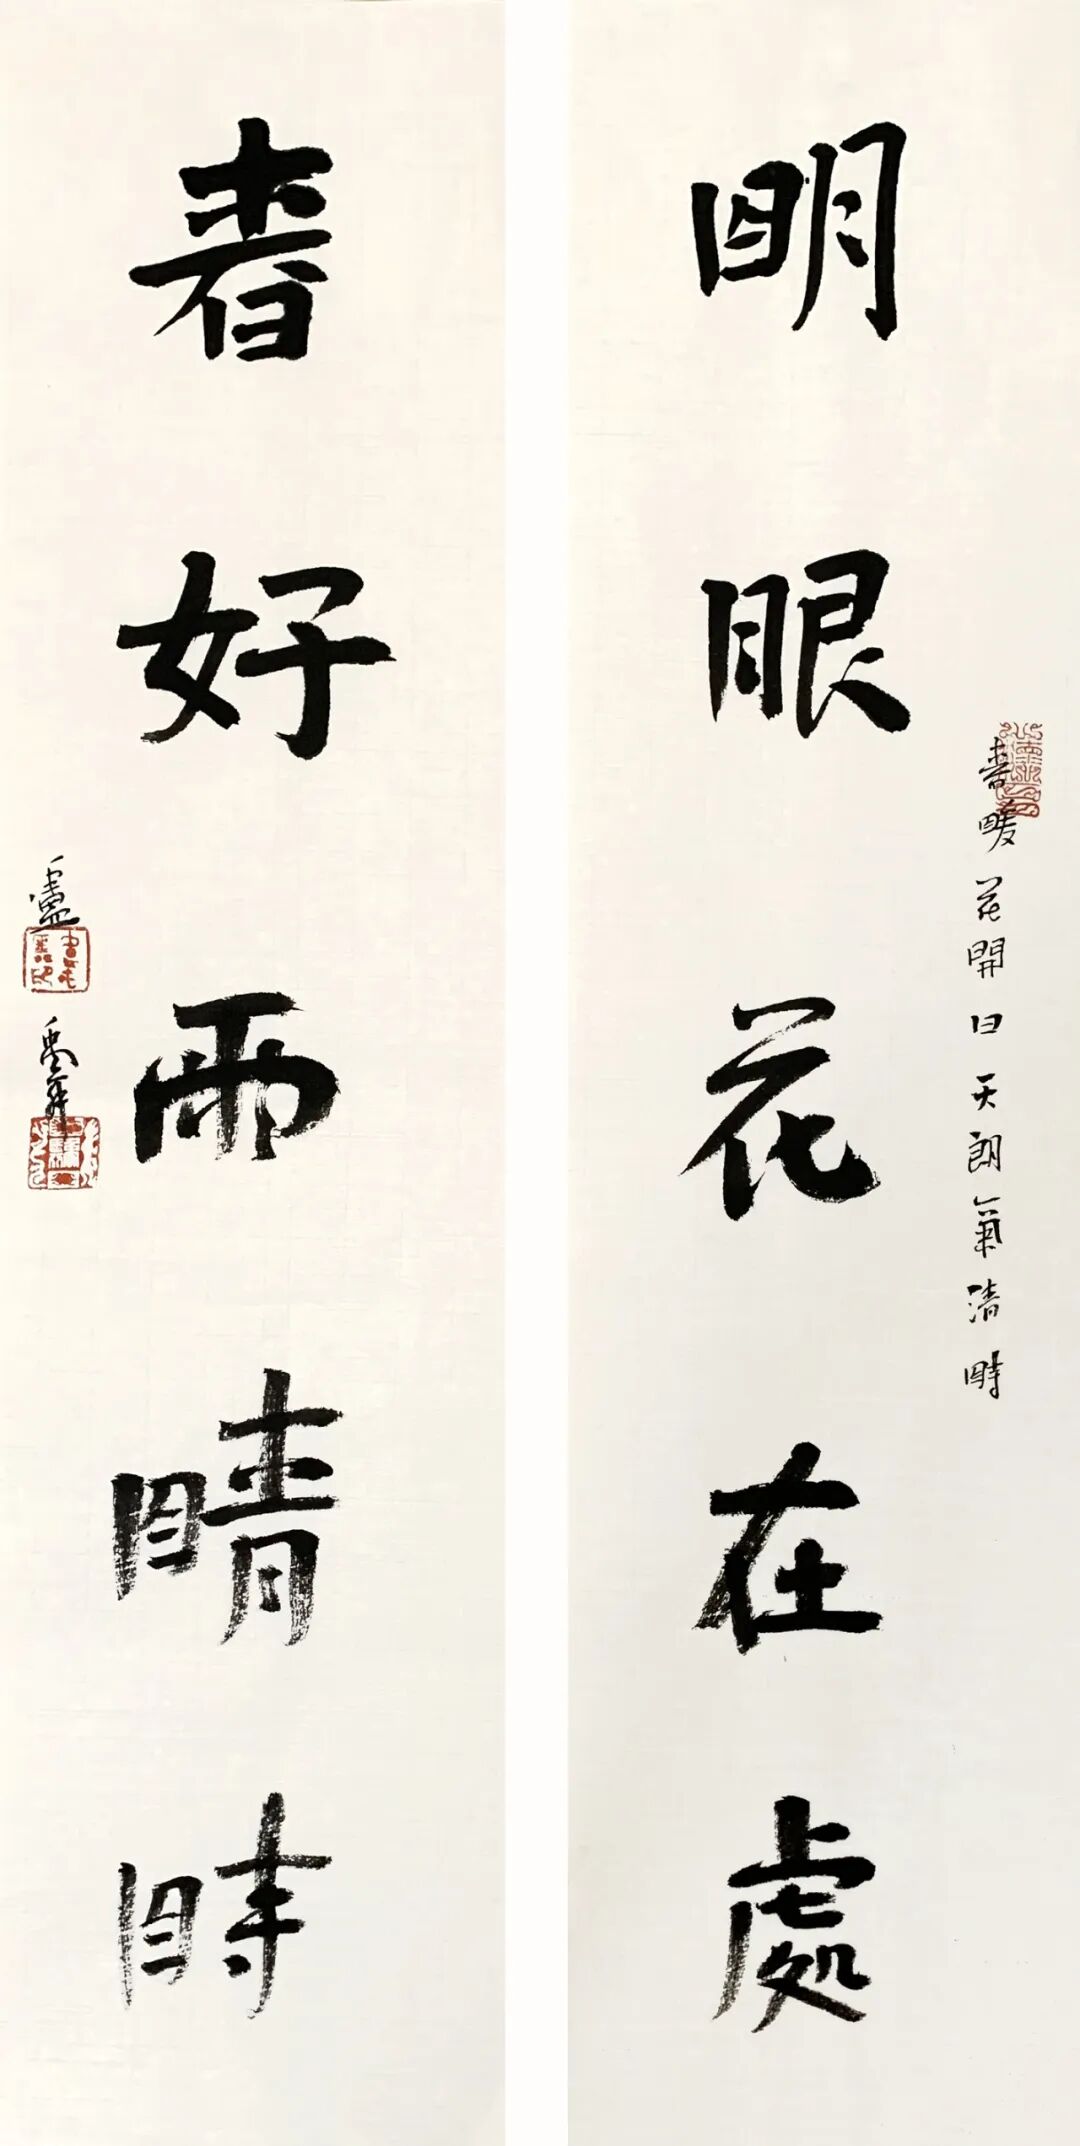 春暖花開日天朗氣清時
明眼花在處
春好雨晴時
盧禹舜